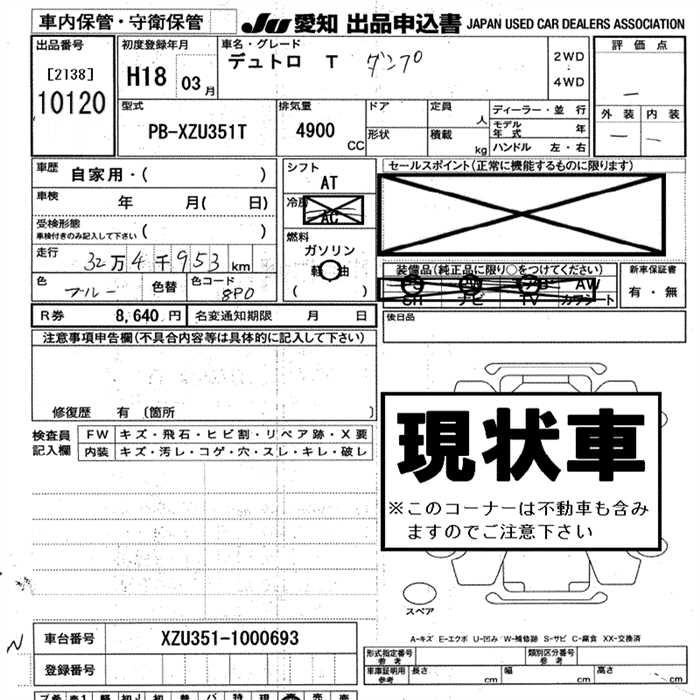 車内保管・守衛保管
JU 愛知 出品申込書 JAPAN USED CAR DEALERS ASSOCIATION
出品番号
[2138]
10120
初度登録年月
H18 03月
車名・グレード
デュトロ T ダンプ
2WD
4WD
評価点
―
外装 内装
― ―
型式
PB-XZU351T
排気量
4900
CC
ドア
形状
定員
人
積載
kg
ディーラー・並行
モデル年式 年
ハンドル 左・右
車歴
自家用・( )
車検
年 月( 日)
受検形態
車検付きのみ記入して下さい ( )
走行
32万4千953km
色
ブルー
色替
色コード
8P0
シフト
AT
冷房
AC
燃料
ガソリン
軽油
( )
セールスポイント(正常に機能するものに限ります)
装備品(純正品に限り○をつけてください)
AW
SR ナビ TV カワシート
新車保証書
有・無
R券 8,640円 名変通知期限 月 日
後日品
注意事項申告欄(不具合内容等は具体的に記入して下さい)
修復歴 有〔箇所 〕
検査員
記入欄
FW キズ・飛石・ヒビ割・リペア跡・X要
内装 キズ・汚レ・コゲ・穴・スレ・キレ・破レ
現状車
※このコーナーは不動車も含み
ますのでご注意下さい
スペア
A-キズ E-エクボ U-凹み W-補修跡 S-サビ C-腐食 XX-交換済
N
車台番号 XZU351-1000693
登録番号
形式指定番号
参考
類別区分番号
参考
車庫証明用
参考
長さ cm 幅 cm 高さ cm